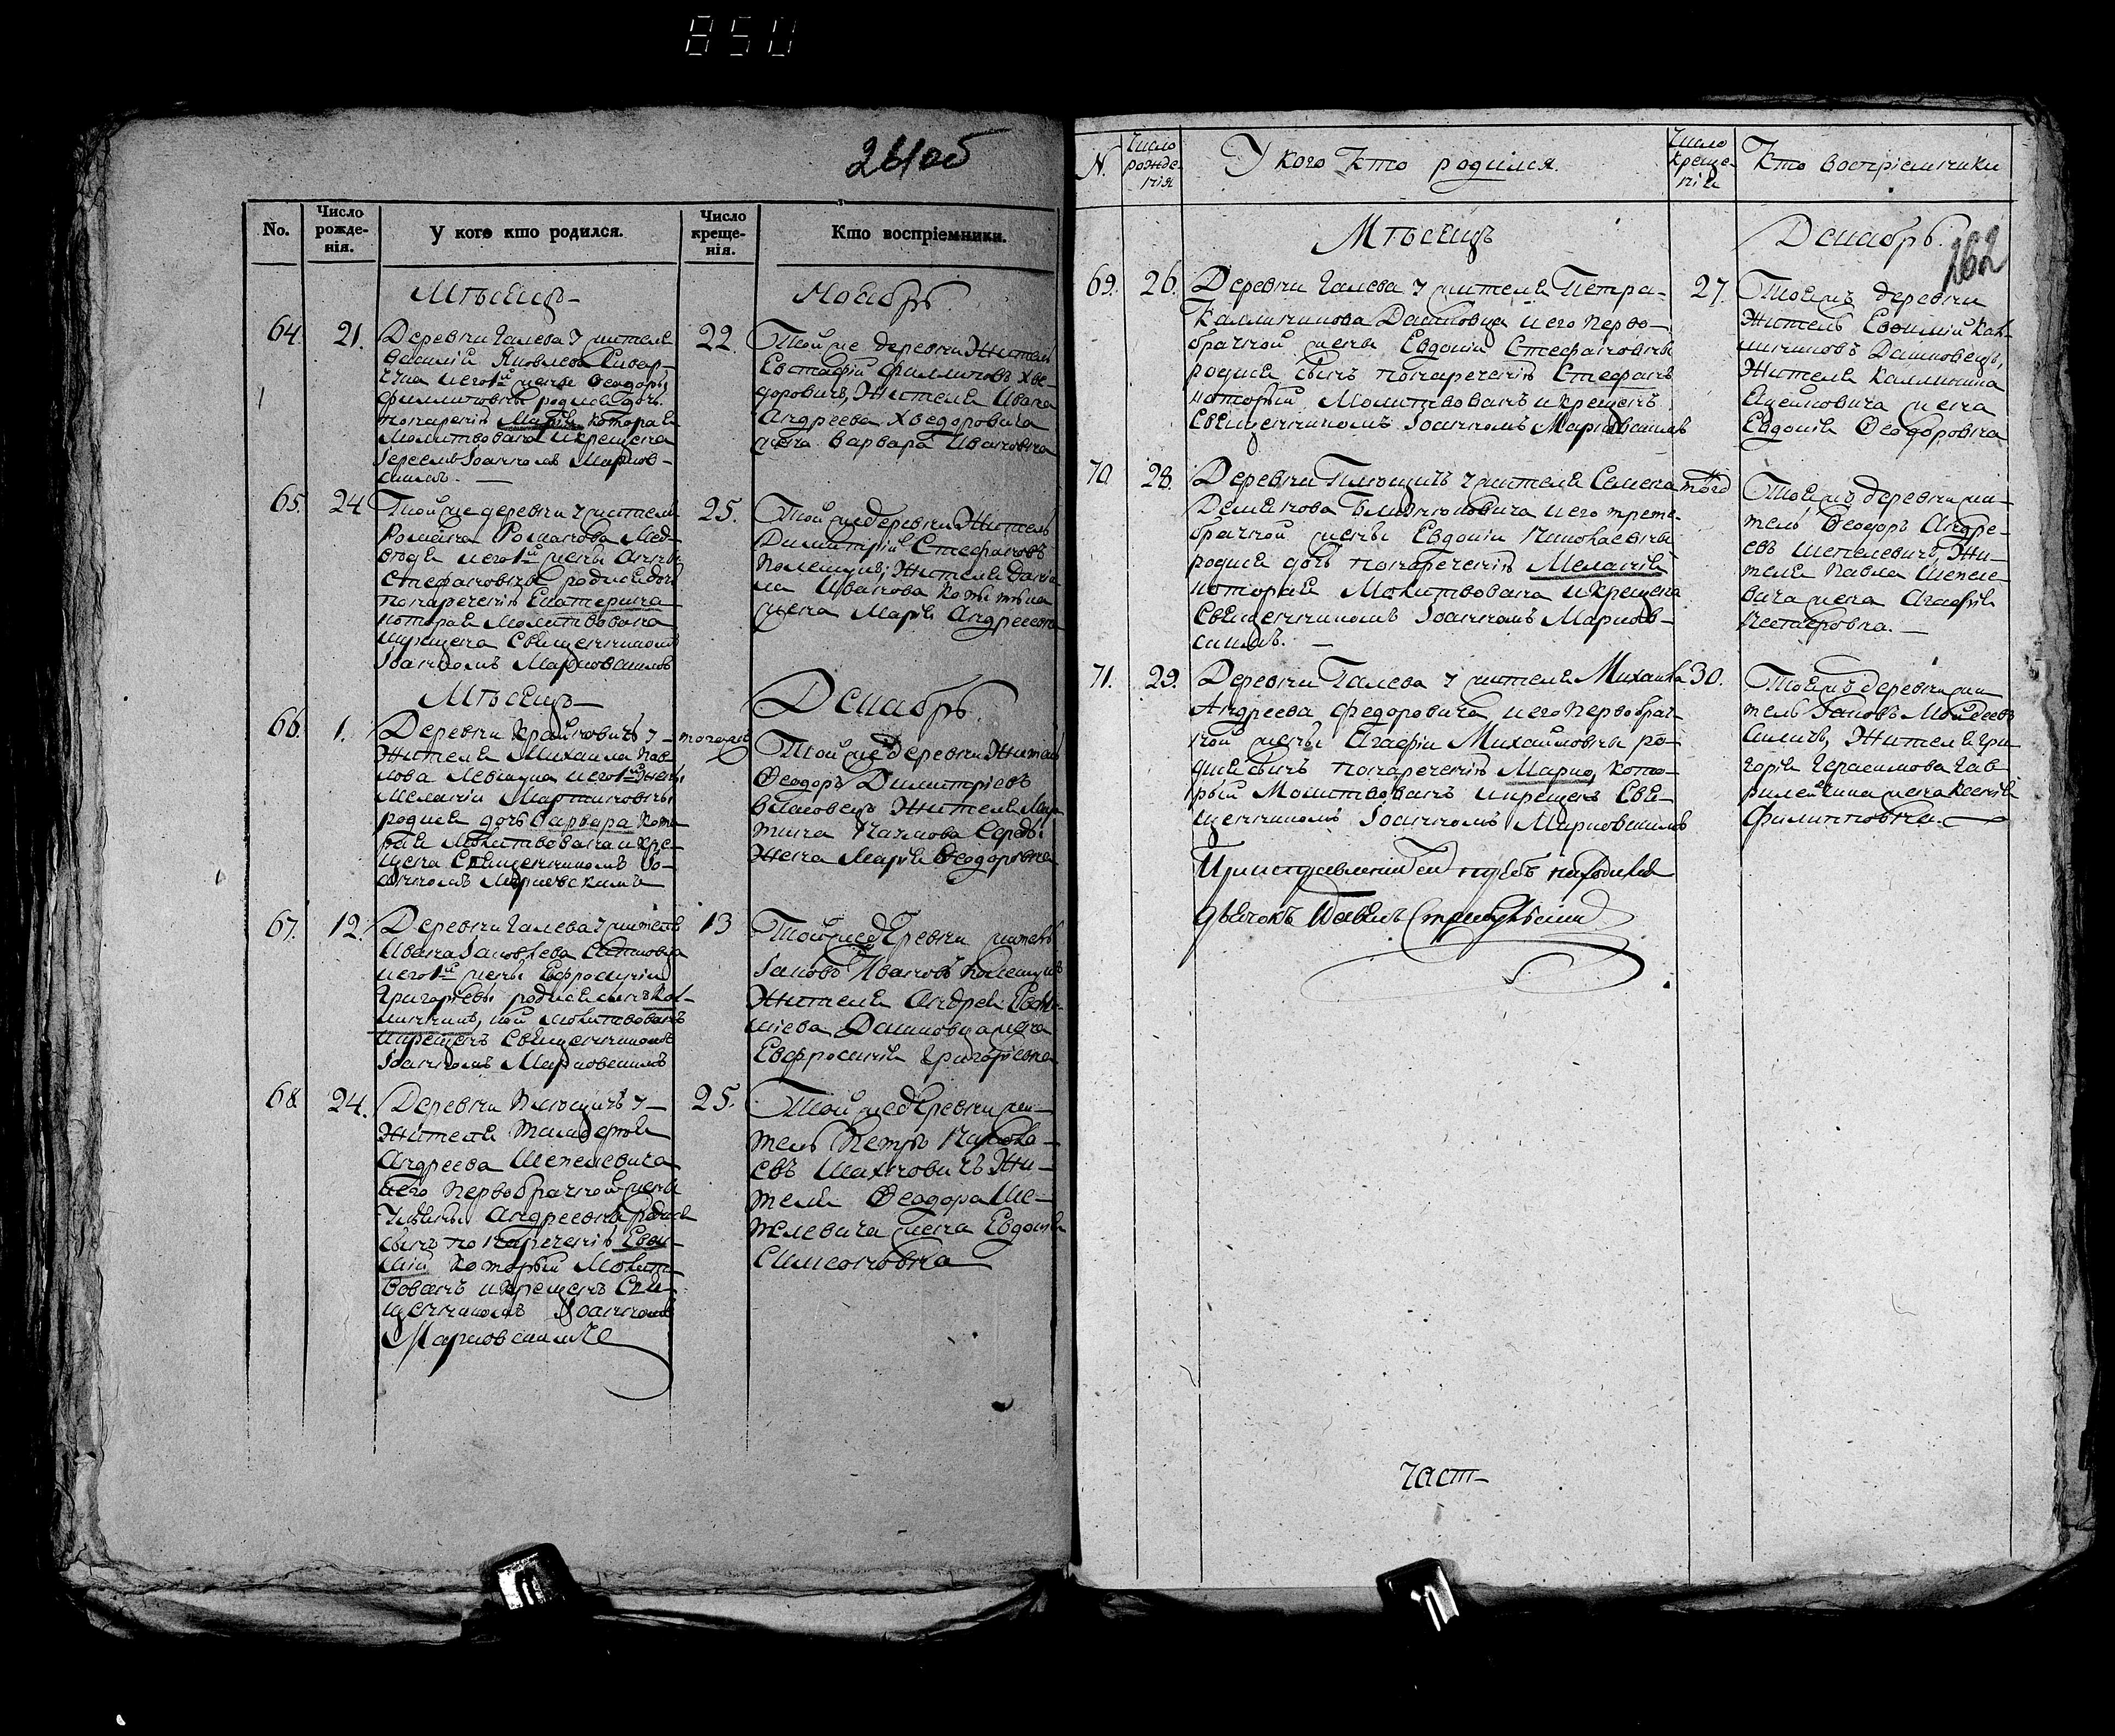 850
261об
No.
Число рожде-нія.
У кого кто родился.
Число креще-нія.
Кто воспріемники.
Мѣсяцъ
Ноябрь
64.
21.
Деревни Галева у жителя
Василія Яковлева
его 1й жены Ѳеодоры
Филиповны родися дочь
по нареченію Марія которая
молитвована и крещена
Іереемъ Іоанномъ Марков-
скимъ.
22.
Той же деревни житель
Евстафій Филиповъ Хве-
доровичъ, Жителя Ивана
Андреева Хведоровича
жена Варвара Ивановна
65.
24
Той же деревни у жителя
Романа Романова Мед-
его 1й жены Анны
Стефановны родися дочь
по нареченію Екатерина
которая молитвована
и крещена Священникомъ
Іоанномъ Марковскимъ
25.
Той же деревни Житель
Димитрій Стефановъ
Полещукъ; Жителя Дані-
ла Иванова
жена Марія Андреевна
Мѣсяцъ
Декабрь.
66.
1.
Деревни Крайновичъ у
Жителя Михаила Пав-
лова его 1й жены
Меланіи Мартиновны
родися дочь Варвара кото-
рая молитвована и кре-
щена Священникомъ Іо-
анномъ Марковскимъ
того же
Той же деревни Житель
Ѳеодоръ Димитріевъ
Жителя Мар-
тина
Жена Марія Ѳеодоровна
67.
12.
Деревни Галева у жителя
Ивана Іаковлева
его 1й жены Евфросиніи
Григорьевы родися сынъ Кал-
линикъ, кой молитвованъ
и крещенъ Священникомъ
Іоанномъ Марковскимъ
13
Той же деревни житель
Іаковъ Ивановъ Полещукъ
Жителя Андрея
Дашковца жена
Евфросинія Григоріевна
68
24.
Деревни Плющичъ у
Жителя
Андреева Шепелевича
его первобрачной жены
Андреевны родися
сынъ по нареченію Евѳи-
мій который молит-
вованъ и крещенъ Свя-
щенникомъ Іоанномъ
Марковскимъ
25.
Той же деревни жи-
тель Петръ
Шахновичъ Жи-
теля Ѳеодора Ше-
пелевича жена Евдокія
Симеоновна
N.
Число рожде-нія
У кого кто родился.
Число креще-нія
Кто воспріемники
Мѣсяцъ
Декабрь.
262
69.
26.
Деревни Галева у жителя Петра
Каллиникова Дашковца и его перво-
брачной жены Евдокіи Стефановны
родися сынъ по нареченію Стефанъ
который молитвованъ и крещенъ
Священникомъ Іоанномъ Марковскимъ
27.
Тоежъ деревни
Житель Евѳимій Кал-
линиковъ Дашковецъ,
Жителя Каллиника
жена
Евдокія Ѳеодоровна
70
28.
Деревни Плющичъ у жителя Семена
Деменкова и его трете-
брачной жены Евдокіи Николаевны
родися дочь по нареченію Меланія
которая молитвована и крещена
Священникомъ Іоанномъ Марков-
скимъ.
того
Тоежъ деревни жи-
тель Ѳеодоръ Андре-
евъ Шепелевичъ, Жи-
теля Павла Шепеле-
вича жена Агафія
Нестеровна.
71.
29.
Деревни Галева у жителя Михаила
Андреева Федоровича и его первобрач-
ной жены Агафіи Михайловны ро-
дися сынъ по нареченію Марко, кото-
рый молитвованъ и крещенъ Свя-
щенникомъ Іоанномъ Марковскимъ
30.
Тоежъ деревни жи-
тель Іаковъ Мойсеевъ
Жителя Гри-
горія Герасимова Гав-
жена Ксенія
Филипповна.
дьячокъ Павелъ
част-